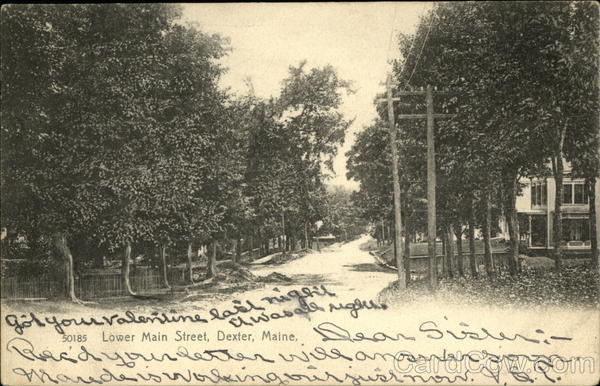 Got your valentine last night
It was all right.
50185 Lower Main Street, Dexter, Maine.
Dear Sister:-
Rec'd your letter will answer later
Maude is working at it just now.
CardCow.com